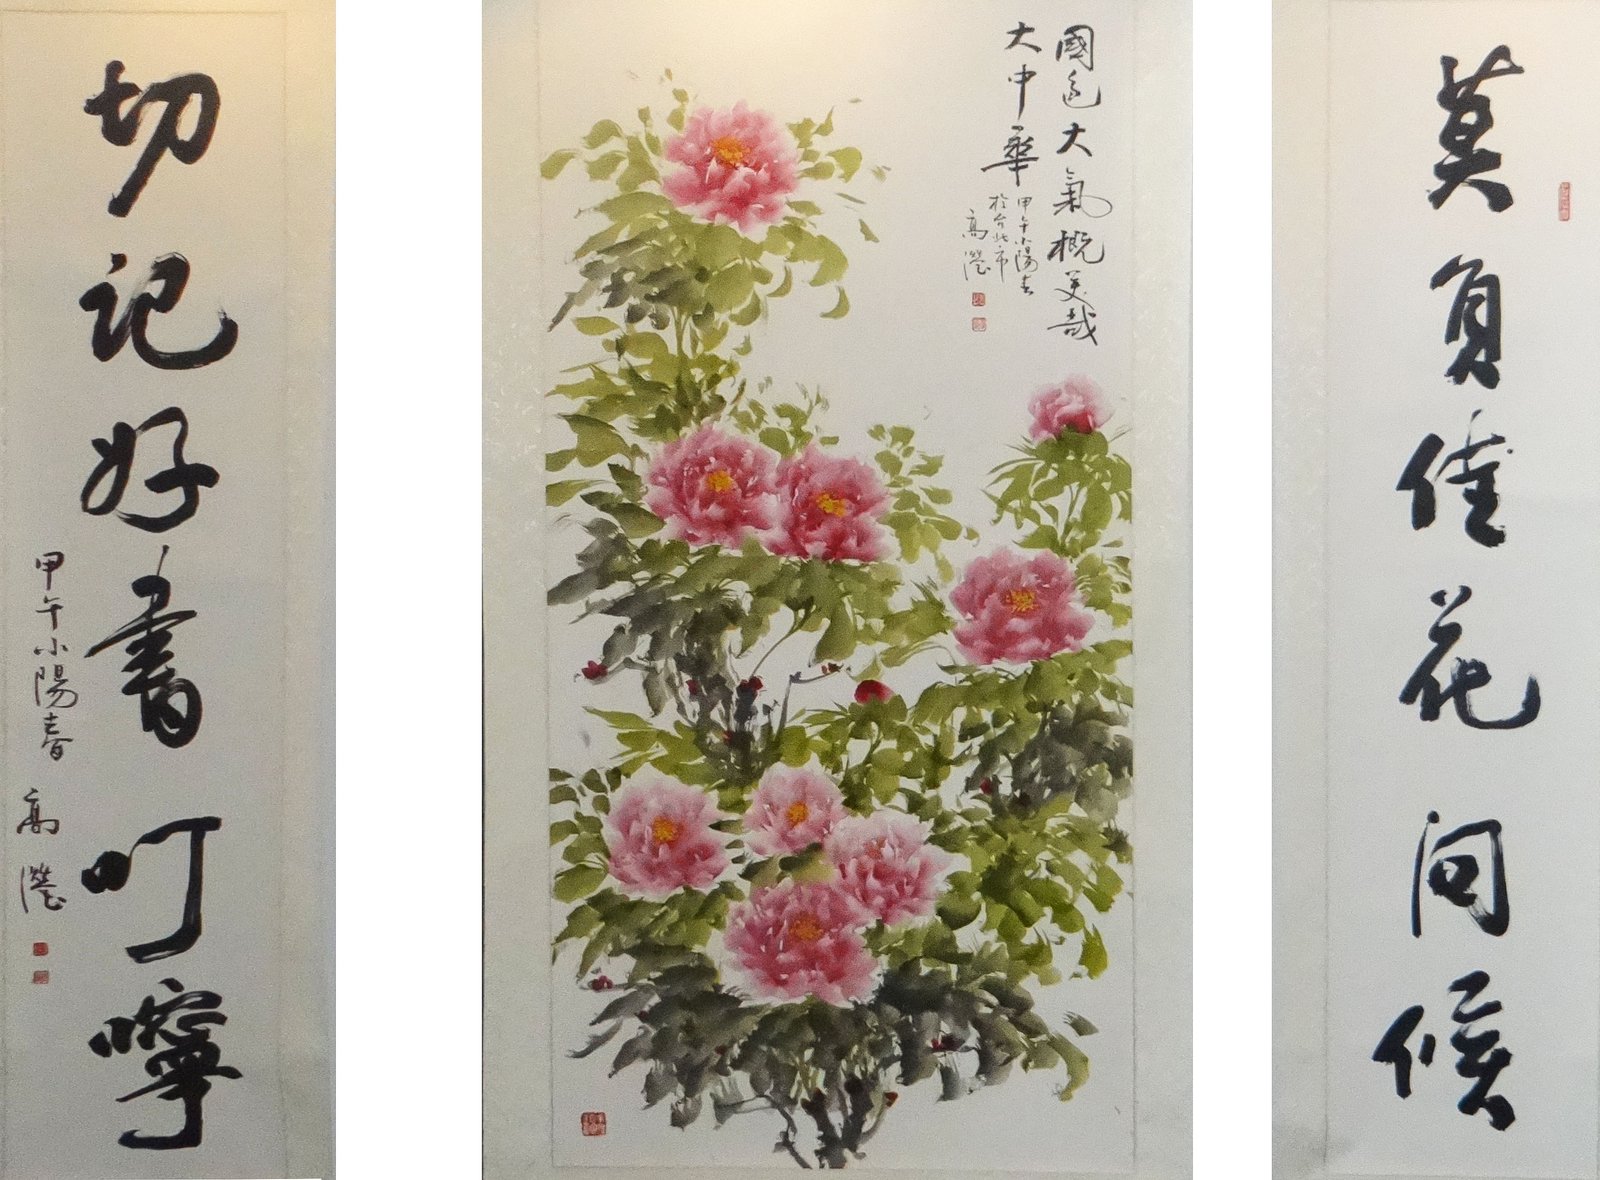 莫負佳花問候
國色大氣概美哉
大中華
甲午小陽春
於台北市
高灃
切記好書叮嚀
甲午小陽春
高灃